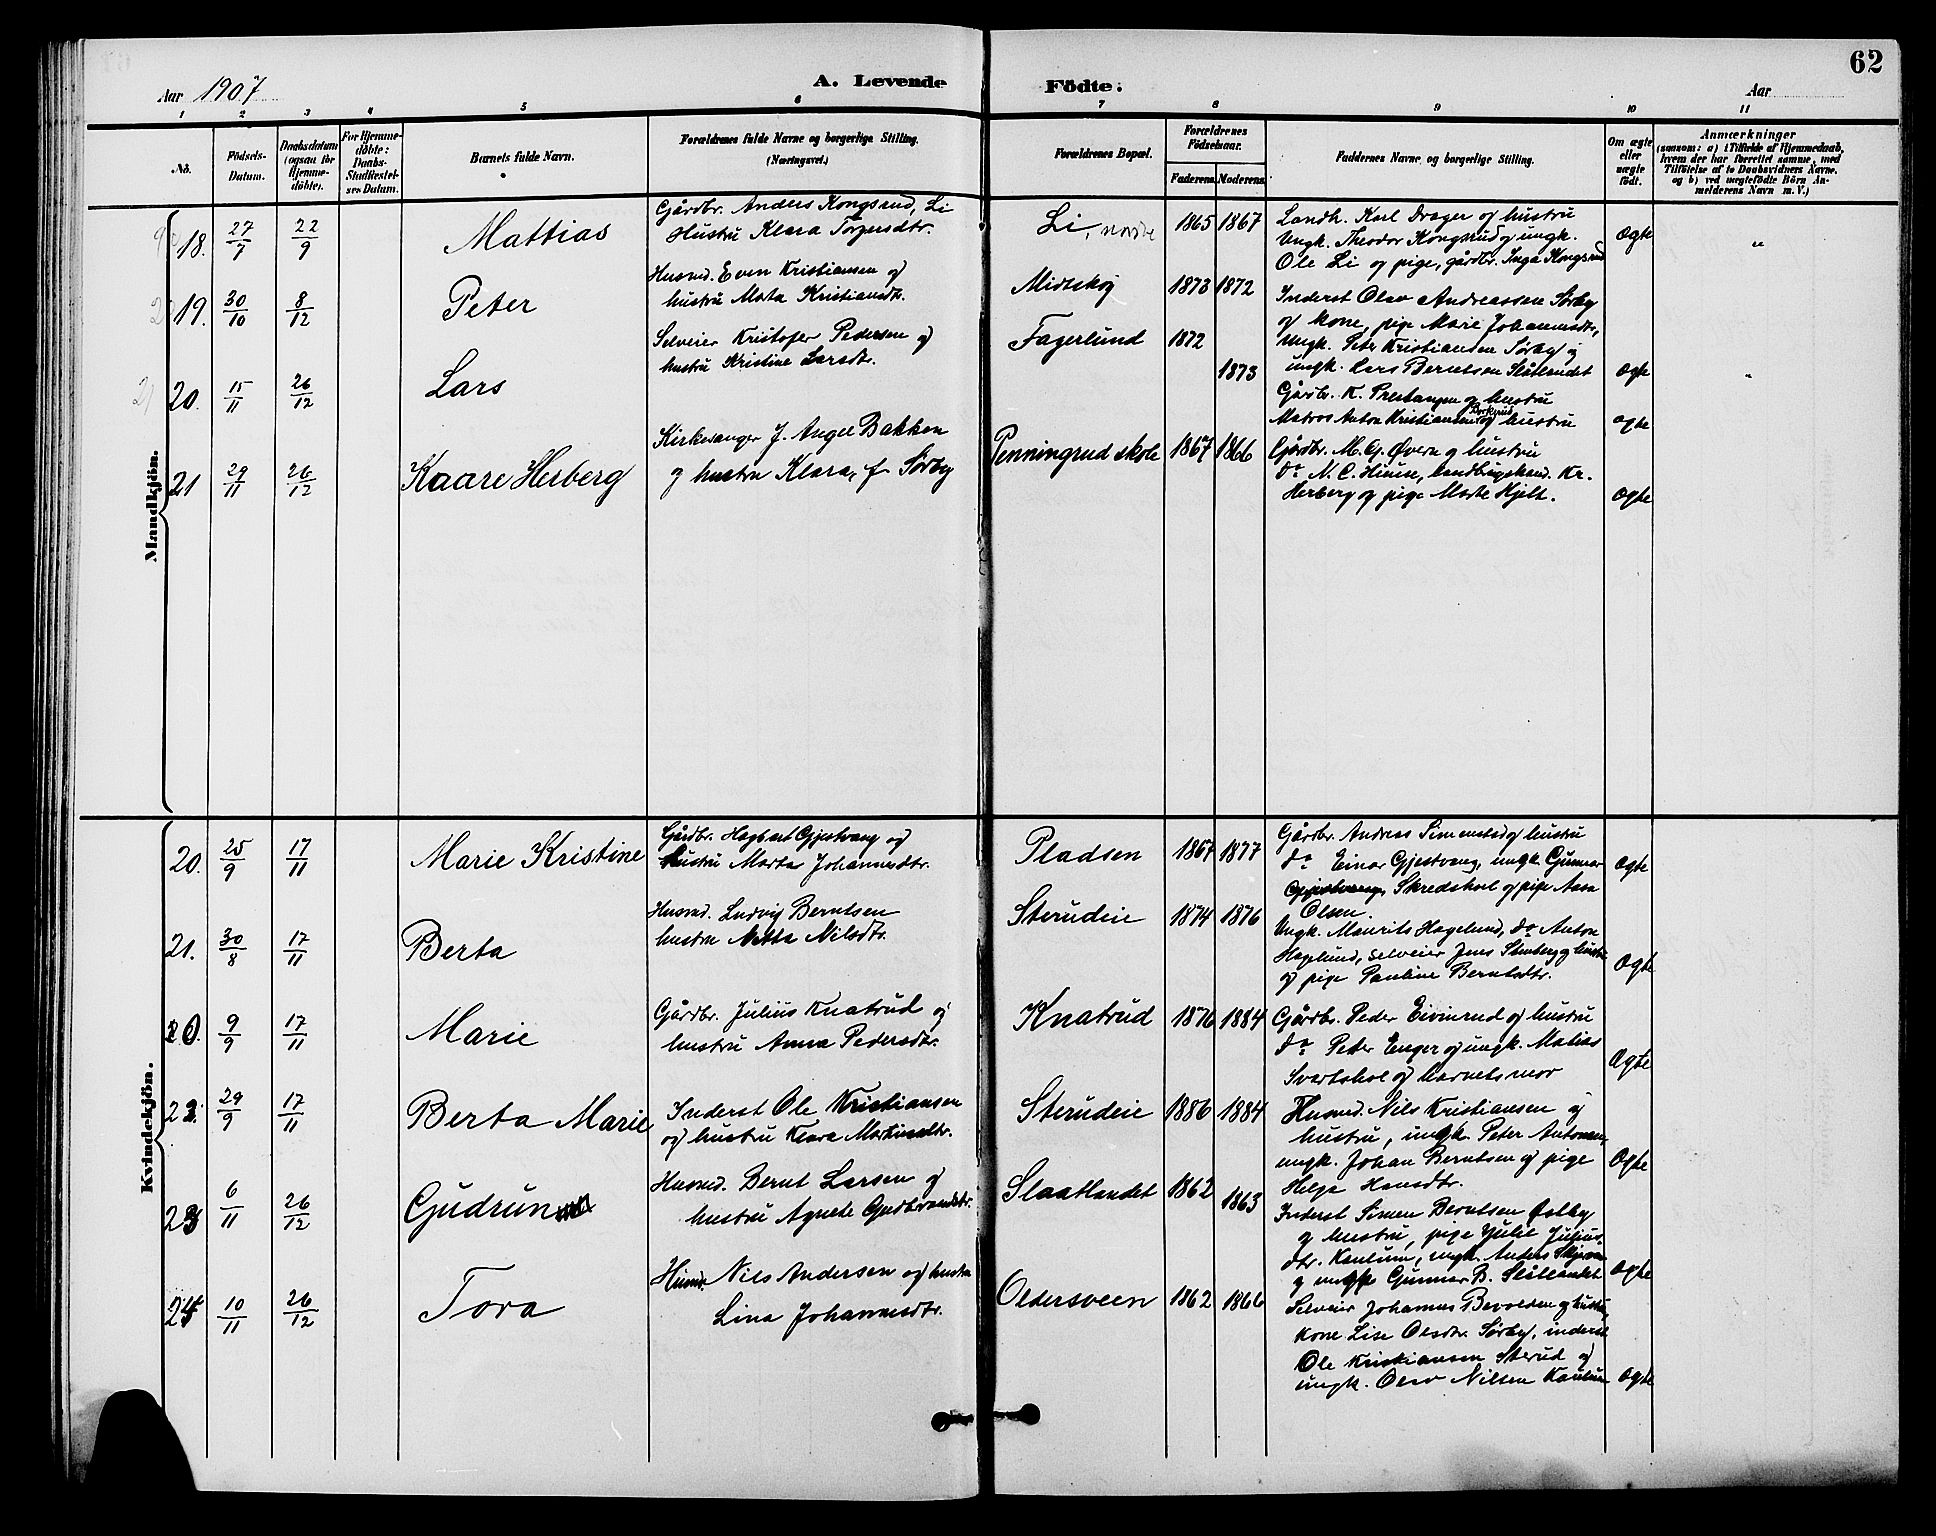 62
Aar 1907
A. Levende Födte.
Aar
1 2 3 4 5 6 7 8 9 10 11
No.
Födsels-Datum.
Daabsdatum (ogsaa for Hjemmedöbte).
For Hjemmedöbte: Daabs-Stadfæstelses Datum.
Barnets fulde Navn.
Forældrenes fulde Navne og borgerlige Stilling.
(Næringsvei.)
Forældrenes Bopæl.
Forældrenes Födselsaar.
Faderens. Moderens.
Faddernes Navne og borgerlige Stilling.
Om ægte eller uægte födt.
Anmærkninger
(saasom: a) i Tilfælde af Hjemmedaab,
hvem der har forrettet samme, med
Tilföielse af to Daabsvidners Navne.
og b) ved uægtefödte Börn An-
melderens Navn m. V.)
Mandkjön.
18. 27/7 22/9 Mattias
Gårdbr. Anders Kongsrud, Li
Hustru Klara Torgersdtr.
Li, nordre 1865 1867
Landh. Karl Drager og hustru
Ungk. Theodor Kongsrud og ungk.
Ole Li og pige, gårdbr. Inga Kongsrud
Øgte "
19. 30/10 8/12 Peter
Husmd. Even Kristiansen og
hustru Marta Kristiansdtr.
Midtskog 1873 1872
Inderst Olav Andreassen Sørby
og kone, pige Marie Johannesdtr,
Ungk. Peter Kristiansen Sørby og
ungk. Lars Berntsen Slåtlandet
Øgte "
20. 15/11 26/12 Lars
Selveier Kristofer Pedersen og
hustru Kristine Larsdtr.
Fagerlund 1872 1873
Gårbr. K. Prestangen og hustru
Matros Anton Kristiansen Borkerud og hustru
Øgte
21 29/11 26/12 Kaare Herberg
Kirkesanger J. Angel Bakken
og hustru Klara, f. Sørby
Penningrud skole 1867 1866
Gårdbr. M. G. Øvern og hustru
do N. C. Huuse, landbrugskand. Kr.
Herberg og pige Marte Hjelt.
Øgte
Kvindekjön.
20. 25/9 17/11 Marie Kristine
Gårdbr. Hagbart Gjestvang og
hustru Marta Johannesdtr.
Pladsen 1867 1877
Gårdbr. Andreas Simenstad og hustru
do Einar Gjestvang, ungk. Gunnar
Gjestvang, Skredshol og pige Aasa
Olsen.
Øgte
21. 30/8 17/11 Berta
Husmd. Ludvig Berntsen
hustru Netta Nilsdtr.
Sterudeie 1874 1876
Ungk. Maurits Hagelund, do Anton
Hagelund, selveier Jens Stenberg og hustru
og pige Pauline Berntsdtr.
Øgte
9/9 17/11 Marie
Gårdbr. Julius Knatrud og
hustru Anna Pedersdtr.
Knatrud 1876 1884
Gårdbr. Peder Eivinrud og hustru
do Peter Enger og ungk. Matias
Svartshol og barnets mor
Øgte
22. 29/9 17/11 Berta Marie
Inderst Ole Kristiansen
og hustru Klara Martinsdtr.
Sterudeie 1886 1884
Husmd. Nils Kristiansen og
hustru, ungk. Peter Antonsen,
ungk. Johan Berntsen og pige
Helga Hansdtr.
Øgte
23 6/11 26/12 Gudrun
Husmd. Bernt Larsen og
hustru Agnete Gudbrandsdtr.
Slaatlandet 1862 1863
Inderst Simen Berntsen Østby
og hustru, pige Julie Julius-
dtr. Kaulum, ungk. Anders
og ungk. Gunnar B. Slåtlandet
Øgte
24 10/11 26/12 Tora
Husmd. Nils Andersen og hustru
Lina Johannesdtr.
Oldersveen 1862 1866
Selveier Johannes Bevolden og hustru,
kone Lise Olsdtr. Sørby, inderst
Ole Kristiansen Sterud og
ungk. Olav Nilsen Kaulum
Øgte